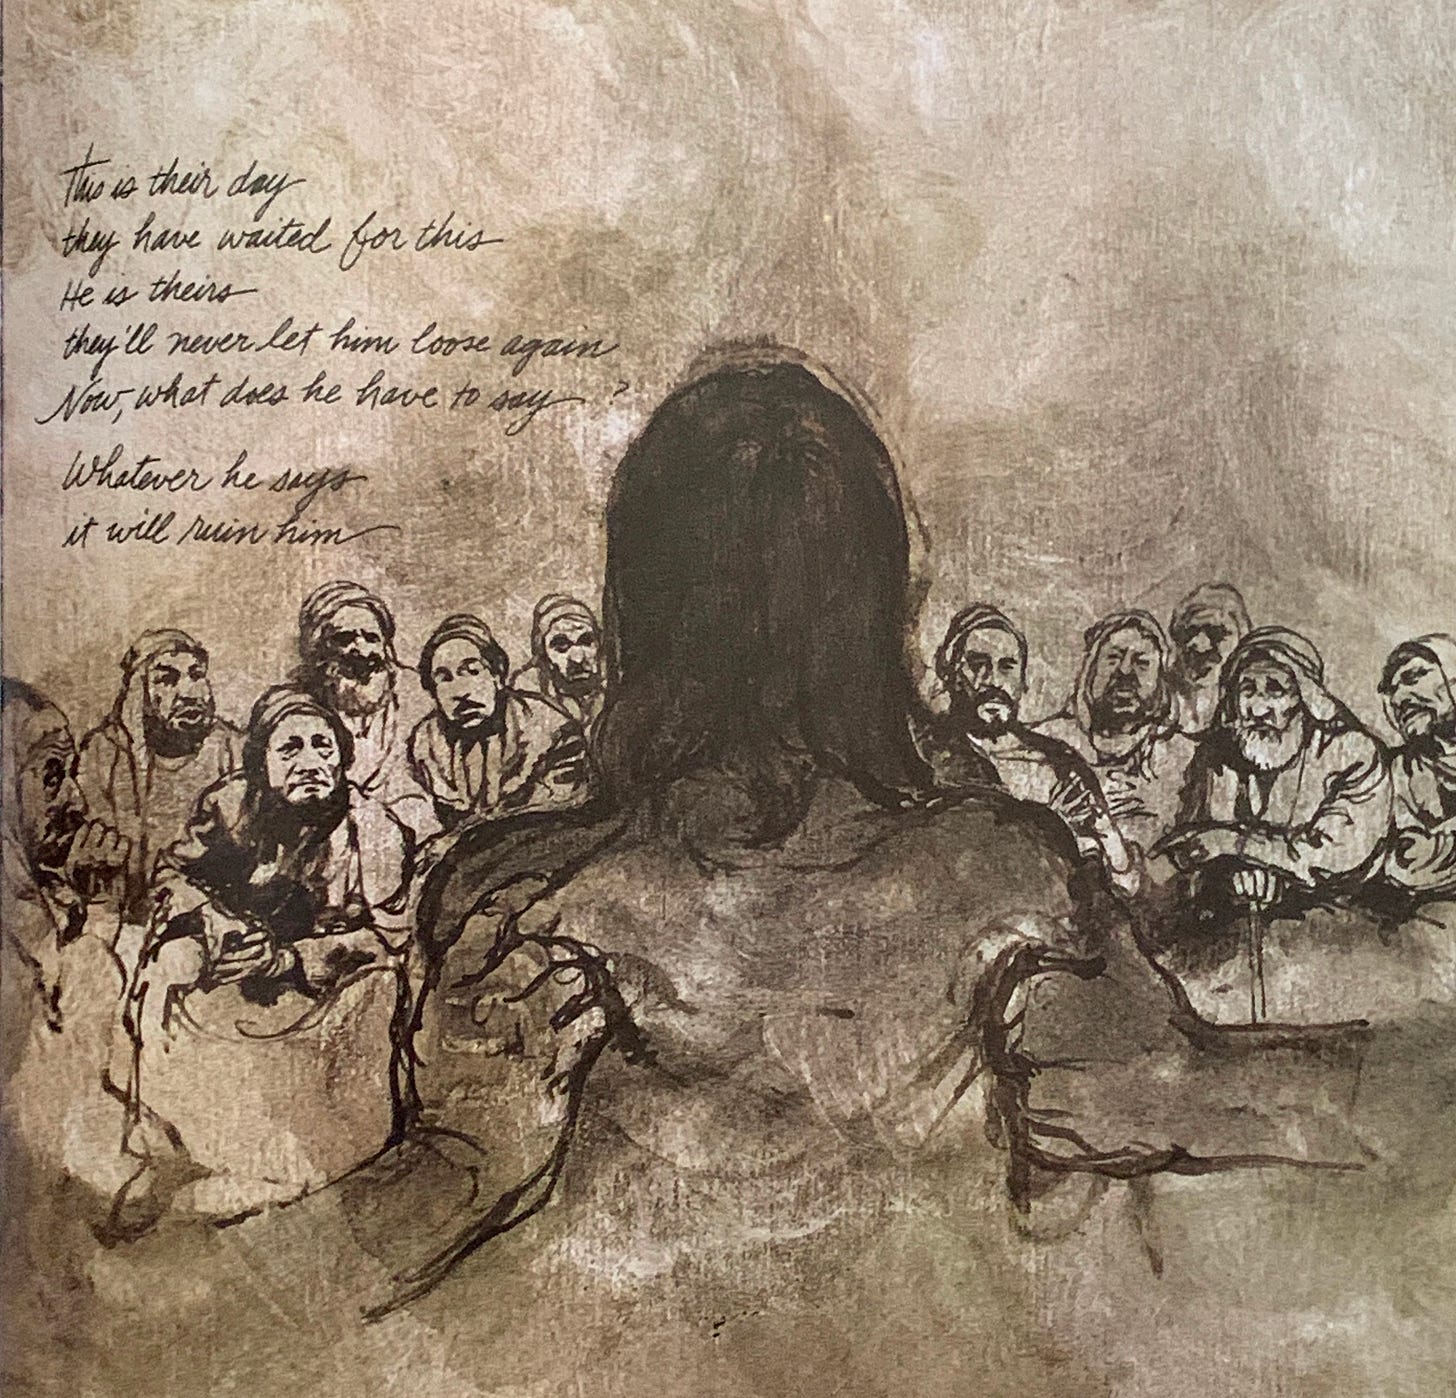 This is their day
they have waited for this
He is theirs
they'll never let him loose again
Now, what does he have to say ?
Whatever he says
it will ruin him